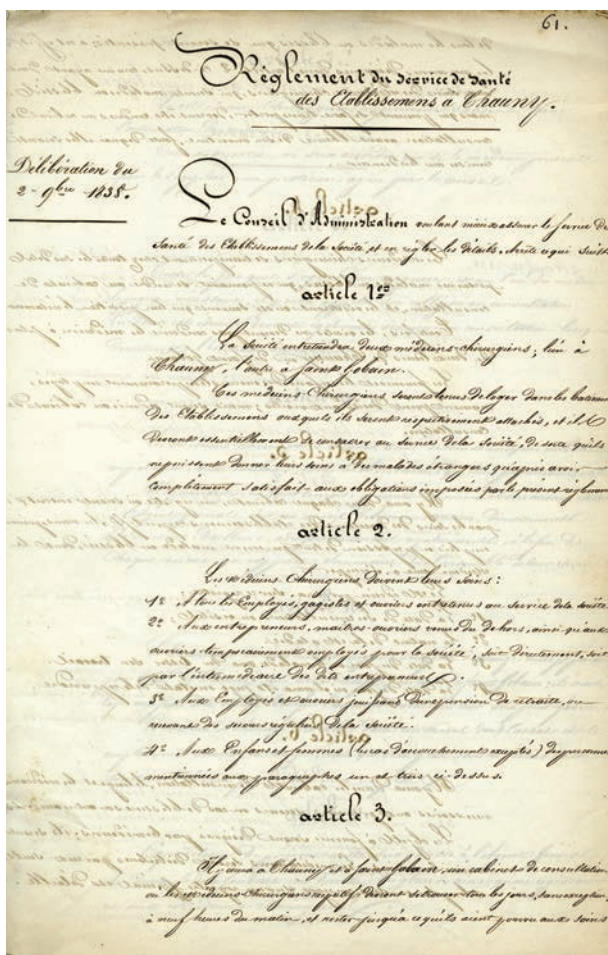 61.
Règlement du Service de Santé
des Etablissemens à Chauny.
Délibération du
2 - 9bre 1838.
Le Conseil d'Administration voulant mieux assurer le service de
Santé des Etablissemens de la Société et en régler les détails, Arrête ce qui suit:
article 1er
La Société entretiendra deux médecins-chirurgiens; l'un à
Chauny, l'autre à Saint Gobain.
Ces médecins-Chirurgiens seront tenus de loger dans les batimens
des Etablissemens auxquels ils seront respectivement attachés, et ils
devront essentiellement se consacrer au service de la Société, de sorte qu'ils
ne puissent donner leurs soins à des malades étrangers qu'après avoir
complètement satisfait aux obligations imposées par le présent règlement
article 2.
Les médecins Chirurgiens doivent leurs soins:
1° A tous les Employés, gagistes et ouvriers entretenus au service de la société
2° Aux entrepreneurs, maitres-ouvriers venus du dehors, ainsi qu'aux
ouvriers employés pour la société, soit directement, soit
par l'intermédiaire des dits entrepreneurs.
3° Aux Employés et ouvriers jouissant d'une pension de retraite, ou
recevant des secours réguliers de la Société.
4° Aux Enfans et femmes (le cas d'accouchement excepté) des personnes
mentionnées aux paragraphes un et trois ci-dessus.
article 3.
Il y aura à Chauny et à Saint-Gobain, un cabinet de consultation
où les médecins-chirurgiens respectifs devront se trouver tous les jours, sans exception,
à neuf heures du matin, et rester jusqu'à ce qu'ils aient pourvu aux soins